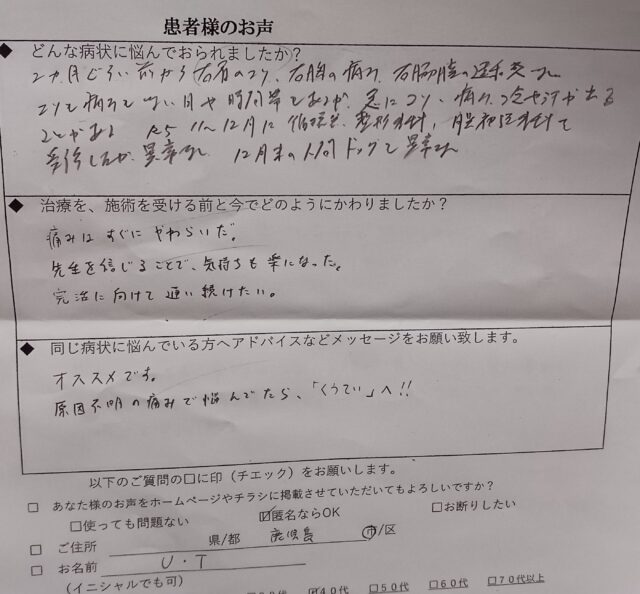 患者様のお声
◆ どんな病状に悩んでおられましたか？
2ヶ月ぐらい前から右肩のコリ、右胸の痛み、右脇腹の違和感。
コリも痛みもない日や時間帯もあるが、急にコリ、痛み、冷や汗が出る
ことがある R5 11〜12月に循環器、整形外科、
受診したが、異常なし 12月末の人間ドックも異常なし
◆ 治療を、施術を受ける前と今でどのようにかわりましたか？
痛みはすぐにやわらいだ。
先生を信じることで、気持ちも楽になった。
完治に向けて通い続けたい。
◆ 同じ病状に悩んでいる方へアドバイスなどメッセージをお願い致します。
オススメです。
原因不明の痛みで悩んでたら、「くうてい」へ!!
以下のご質問の口に印（チェック）をお願いします。
□ あなた様のお声をホームページやチラシに掲載させていただいてもよろしいですか？
□使っても問題ない ☑匿名ならOK □お断りしたい
□ ご住所 県/都 鹿児島 市/区
□ お名前 U・T
（イニシャルでも可）
☑40代 □50代 □60代 □70代以上